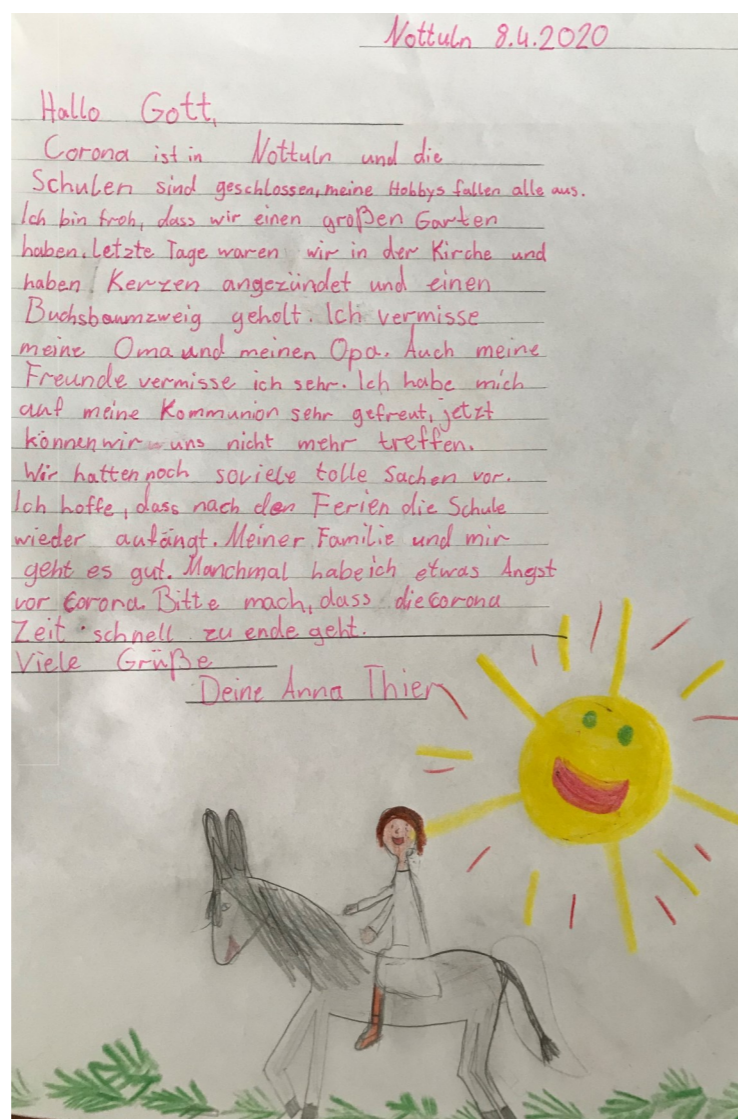 Nottuln 8.4.2020
Hallo Gott,
Corona ist in Nottuln und die
Schulen sind geschlossen, meine Hobbys fallen alle aus.
Ich bin froh, dass wir einen großen Garten
haben. Letzte Tage waren wir in der Kirche und
haben Kerzen angezündet und einen
Buchsbaumzweig geholt. Ich vermisse
meine Oma und meinen Opa. Auch meine
Freunde vermisse ich sehr. Ich habe mich
auf meine Kommunion sehr gefreut, jetzt
können wir uns nicht mehr treffen.
Wir hatten noch soviele tolle Sachen vor.
Ich hoffe, dass nach den Ferien die Schule
wieder anfängt. Meiner Familie und mir
geht es gut. Manchmal habe ich etwas Angst
vor Corona. Bitte mach, dass die corona
Zeit schnell zu ende geht.
Viele Grüße
Deine Anna Thier